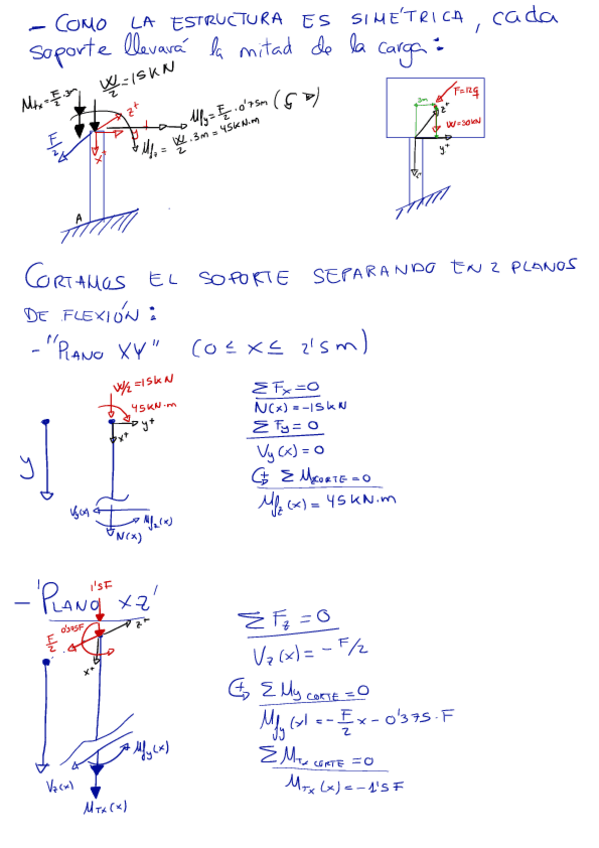 - COMO LA ESTRUCTURA ES SIMÉTRICA, cada
soporte llevará la mitad de la carga:
W/2 = 15KN
Mtx = F/2 · 3m
Mfy = F/2 · 0'75m
Mfz = W/2 · 3m = 45KN.m
F/2
z+
y+
x+
A
3m
z+
W=30KN
y+
CORTAMOS EL SOPORTE SEPARANDO EN 2 PLANOS
DE FLEXIÓN:
- "PLANO XY" (0 ≤ x ≤ 2'5m)
W/2 = 15KN
45KN.m
y+
x+
y
Mfz(x)
N(x)
ΣFx=0
N(x) = -15KN
ΣFy=0
Vy(x) = 0
ΣMCORTE=0
Mfz(x) = 45KN.m
- 'PLANO XZ'
1'5F
0'375F
F/2
z+
x+
Mfy(x)
Vz(x)
MTX(x)
ΣFz = 0
Vz(x) = -F/2
ΣMy CORTE = 0
Mfy(x) = -F/2 x - 0'375·F
ΣMTx CORTE = 0
MTX(x) = -1'5F